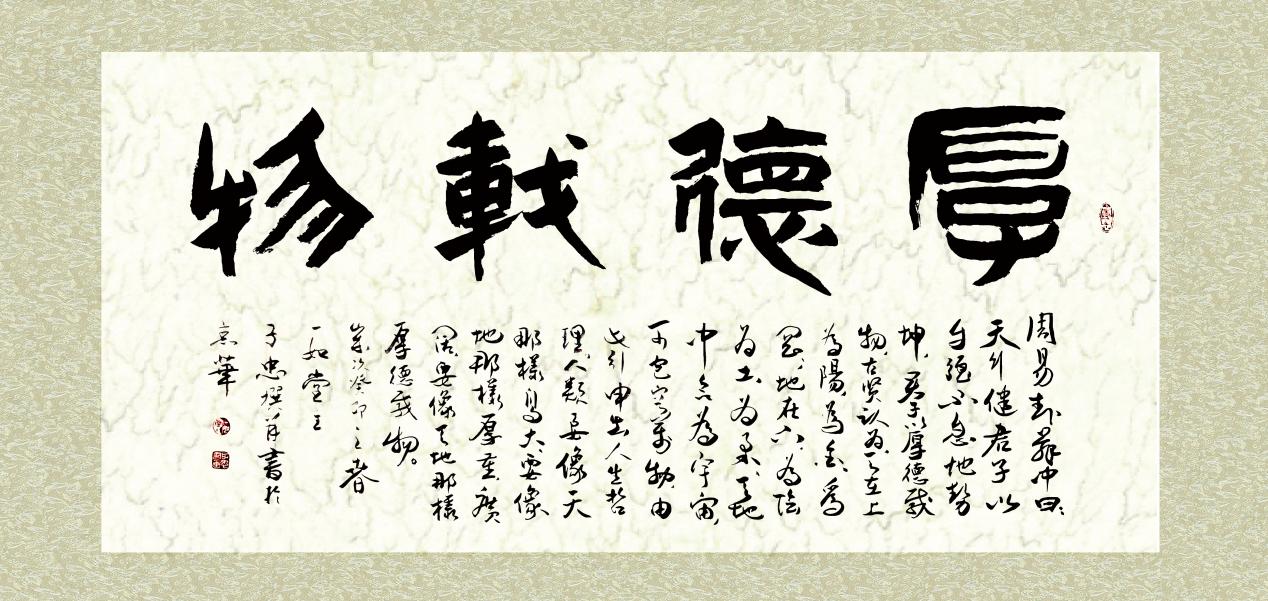 厚德載物
周易卦辭中曰:
天行健君子以
自强不息地勢
坤,君子以厚德載
物,古賢认為天在上
為陽,為金,為
地在下,為陰
為土,為柔,天地
中合為宇宙,
可包容萬物,由
此引申出人生哲
理,人類要像天
那樣高大,要像
地那樣厚重,廣
闊,要像天地那樣
厚德載物。
岁次癸卯之春
一如堂主
于忠書於
京華